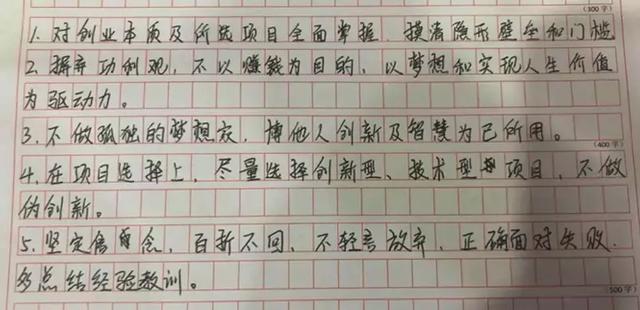 (300字)
1.对创业本质及所选项目全面掌握.摸清隐形壁垒和门槛
2.摒弃功利观,不以赚钱为目的,以梦想和实现人生价值
为驱动力。
3.不做孤独的梦想家,博他人创新及智慧为己所用。
(400字)
4.在项目选择上,尽量选择创新型、技术型项目,不做
伪创新。
5.坚定信念,百折不回、不轻言放弃,正确面对失败.
多总结经验教训。
(500字)